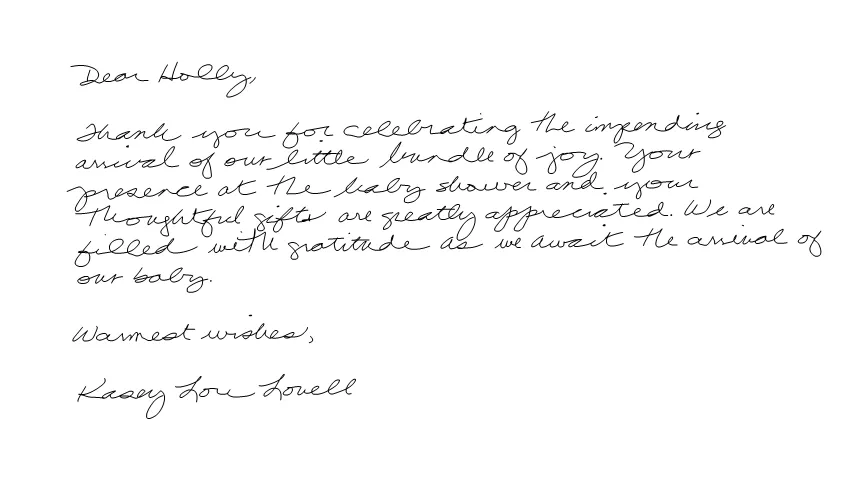 Dear Holly,
Thank you for celebrating the impending
arrival of our little bundle of joy. Your
presence at the baby shower and your
thoughtful gifts are greatly appreciated. We are
filled with gratitude as we await the arrival of
our baby.
Warmest wishes,
Kasey Lou Lovell